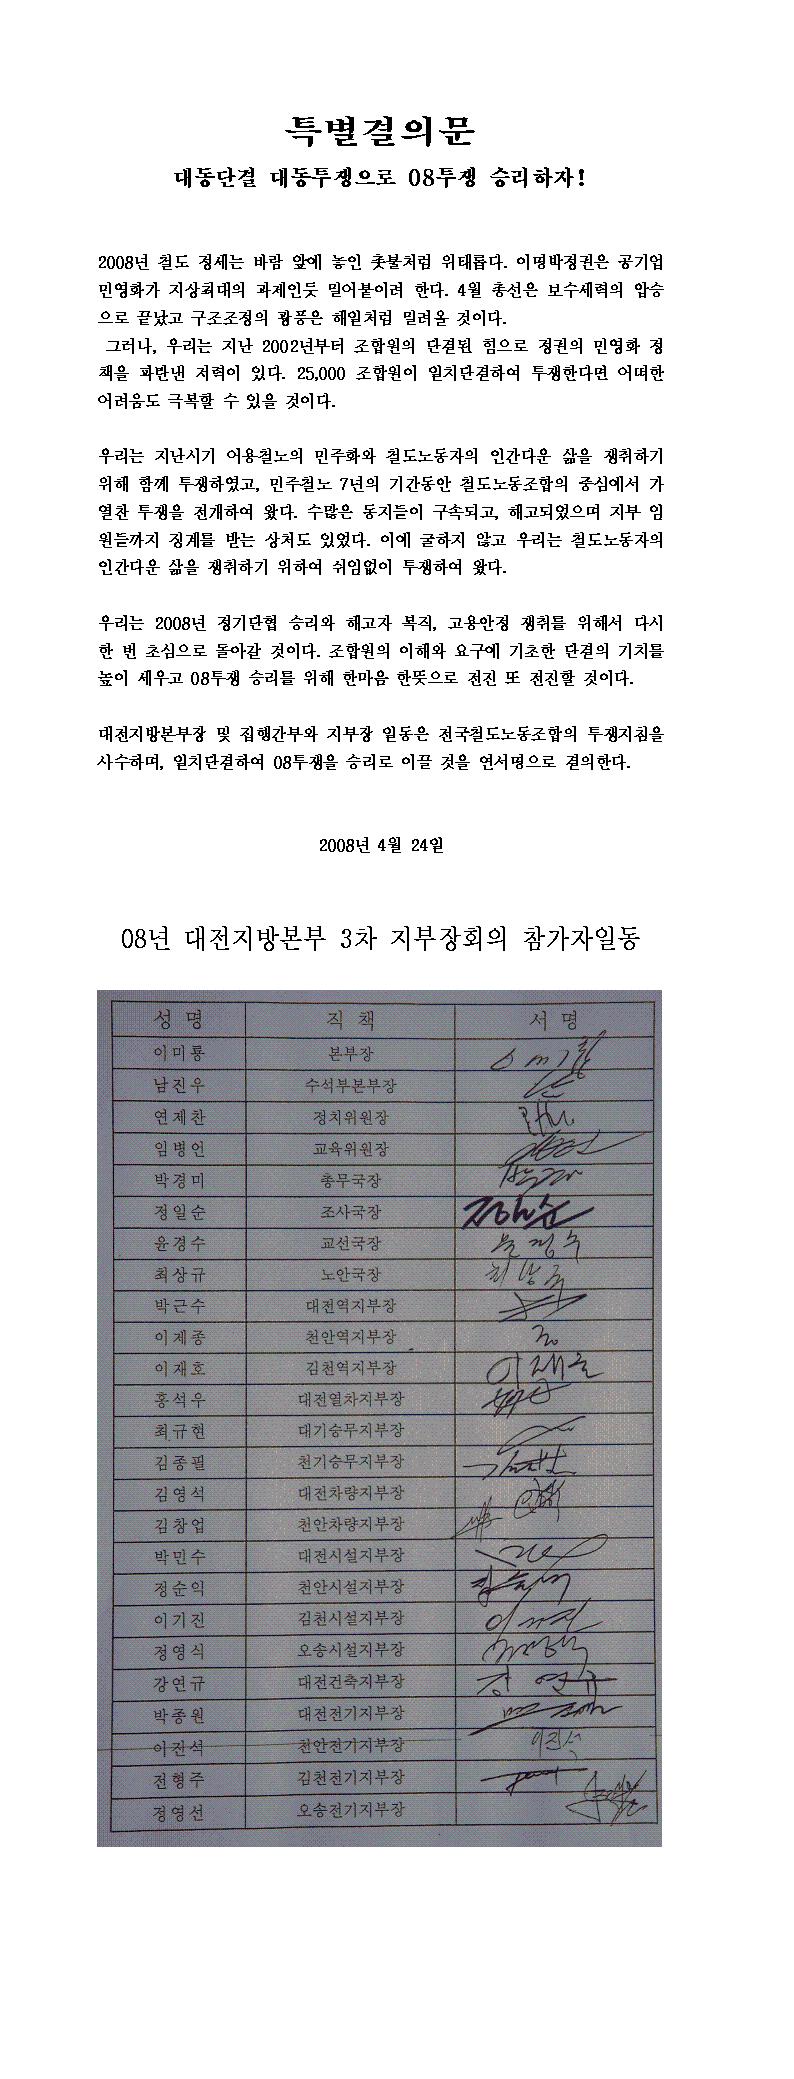 특별결의문
대동단결 대동투쟁으로 08투쟁 승리하자!
2008년 철도 정세는 바람 앞에 놓인 촛불처럼 위태롭다. 이명박정권은 공기업
민영화가 지상최대의 과제인듯 밀어붙이려 한다. 4월 총선은 보수세력의 압승
으로 끝났고 구조조정의 광풍은 해일처럼 밀려올 것이다.
그러나, 우리는 지난 2002년부터 조합원의 단결된 힘으로 정권의 민영화 정
책을 파탄낸 저력이 있다. 25,000 조합원이 일치단결하여 투쟁한다면 어떠한
어려움도 극복할 수 있을 것이다.
우리는 지난시기 어용철노의 민주화와 철도노동자의 인간다운 삶을 쟁취하기
위해 함께 투쟁하였고, 민주철노 7년의 기간동안 철도노동조합의 중심에서 가
열찬 투쟁을 전개하여 왔다. 수많은 동지들이 구속되고, 해고되었으며 지부 임
원들까지 징계를 받는 상처도 있었다. 이에 굴하지 않고 우리는 철도노동자의
인간다운 삶을 쟁취하기 위하여 쉬임없이 투쟁하여 왔다.
우리는 2008년 정기단협 승리와 해고자 복직, 고용안정 쟁취를 위해서 다시
한 번 초심으로 돌아갈 것이다. 조합원의 이해와 요구에 기초한 단결의 기치를
높이 세우고 08투쟁 승리를 위해 한마음 한뜻으로 전진 또 전진할 것이다.
대전지방본부장 및 집행간부와 지부장 일동은 전국철도노동조합의 투쟁지침을
사수하며, 일치단결하여 08투쟁을 승리로 이끌 것을 연서명으로 결의한다.
2008년 4월 24일
08년 대전지방본부 3차 지부장회의 참가자일동
성 명 직 책 서 명
이미룡 본부장
남진우 수석부본부장
연제찬 정치위원장
임병언 교육위원장
박경미 총무국장
정일순 조사국장 정일순
윤경수 교선국장 윤경수
최상규 노안국장 최상규
박근수 대전역지부장
이제종 천안역지부장
이재호 김천역지부장 이재호
홍석우 대전열차지부장
최규현 대기승무지부장
김종필 천기승무지부장
김영석 대전차량지부장
김창업 천안차량지부장
박민수 대전시설지부장
정순익 천안시설지부장
이기진 김천시설지부장 이기진
정영식 오송시설지부장
강연규 대전건축지부장 강연규
박종원 대전전기지부장
이진석 천안전기지부장 이진석
전형주 김천전기지부장
정영선 오송전기지부장